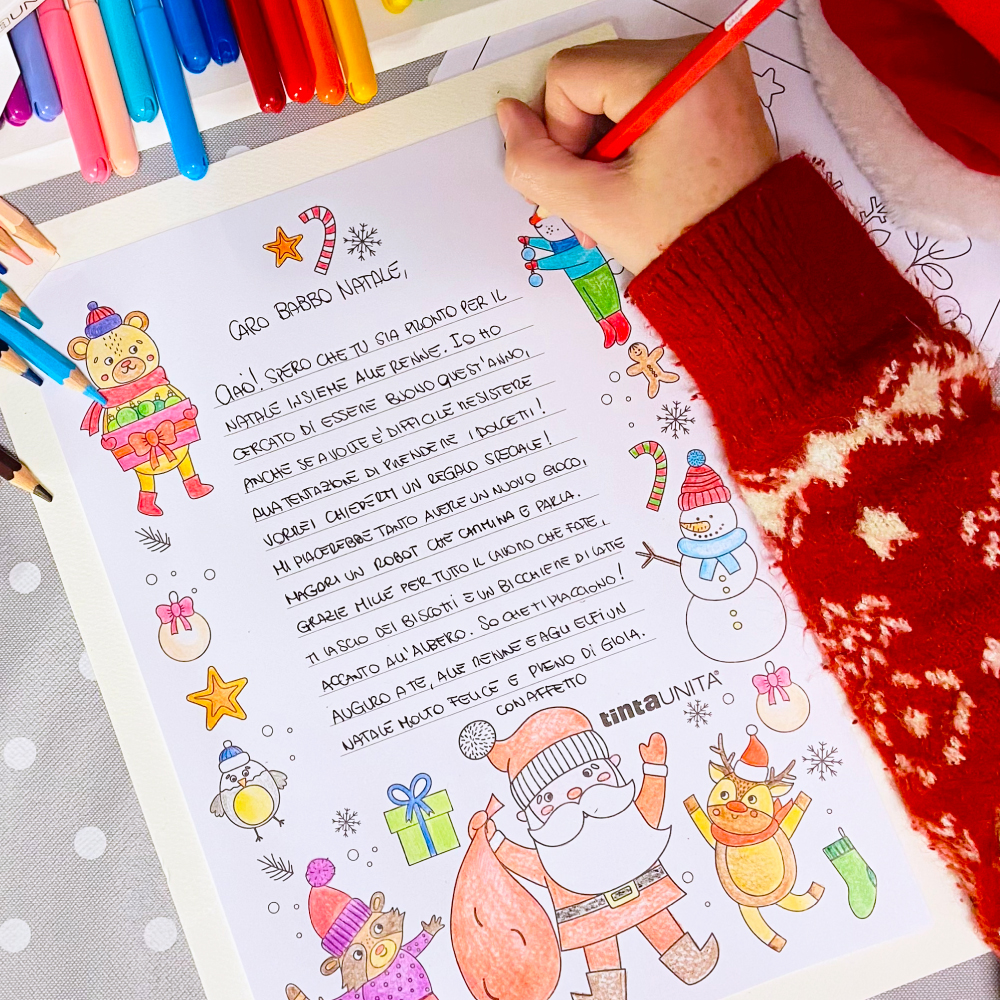 CARO BABBO NATALE,
CIAO! SPERO CHE TU SIA PRONTO PER IL
NATALE INSIEME ALLE RENNE. IO HO
CERCATO DI ESSERE BUONO QUEST'ANNO,
ANCHE SE A VOLTE E' DIFFICILE RESISTERE
ALLA TENTAZIONE DI PRENDERE I DOLCETTI!
VORREI CHIEDERTI UN REGALO SPECIALE!
MI PIACEREBBE TANTO AVERE UN NUOVO GIOCO,
MAGARI UN ROBOT CHE CAMMINA E PARLA.
GRAZIE MILLE PER TUTTO IL LAVORO CHE FATE,
TI LASCIO DEI BISCOTTI E UN BICCHIERE DI LATTE
ACCANTO ALL'ALBERO. SO CHE TI PIACCIONO!
AUGURO A TE, ALLE RENNE E AGLI ELFI UN
NATALE MOLTO FELICE E PIENO DI GIOIA.
CON AFFETTO
tintaUNITA®